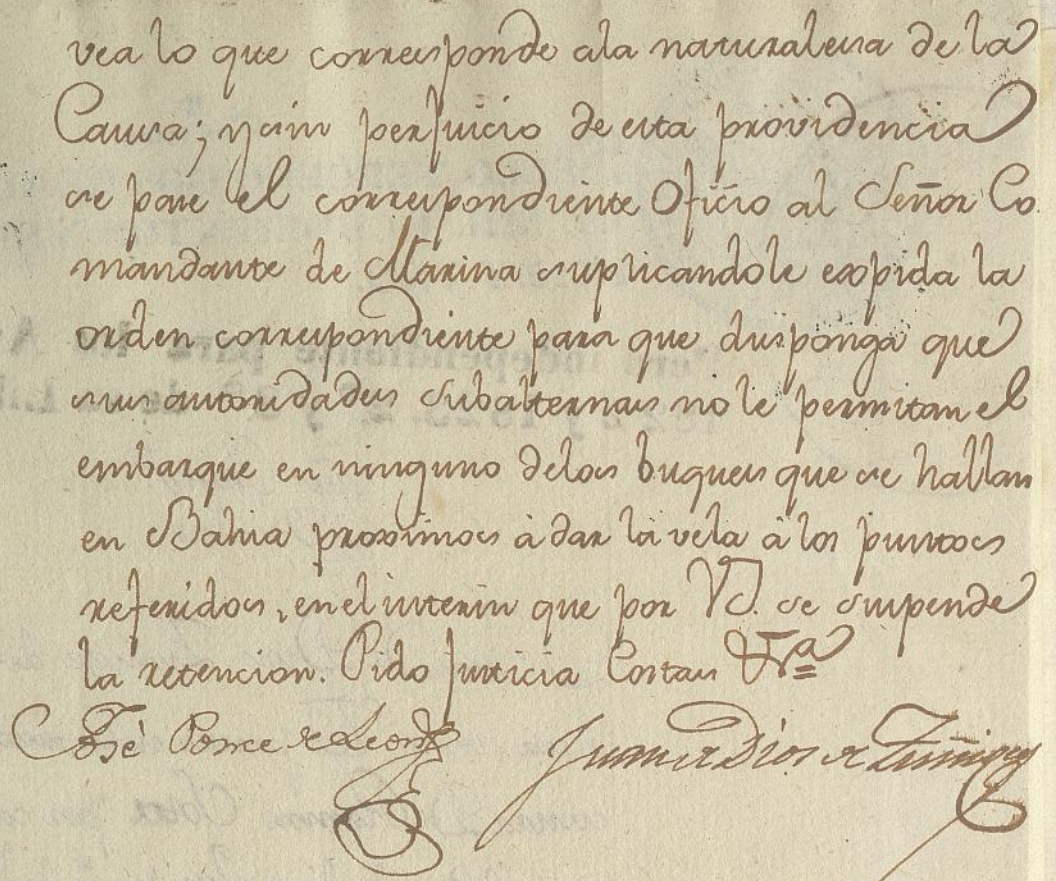 vea lo que corresponde ala naturalesa de la
Causa; y sin perjuicio de esta providencia
se pase el correspondiente Oficio al Señor Co
mandante de Marina suplicandole expida la
orden correspondiente para que disponga que
sus autoridades subalternas no le permitan el
embarque en ninguno delos buques que se hallan
en Bahia proximos à dar la vela à los puntos
referidos, en el interin que por VS. se suspende
la retencion. Pido Justicia Costas &ra
José Ponce de Leon
Juan de Dios de Zuñiga